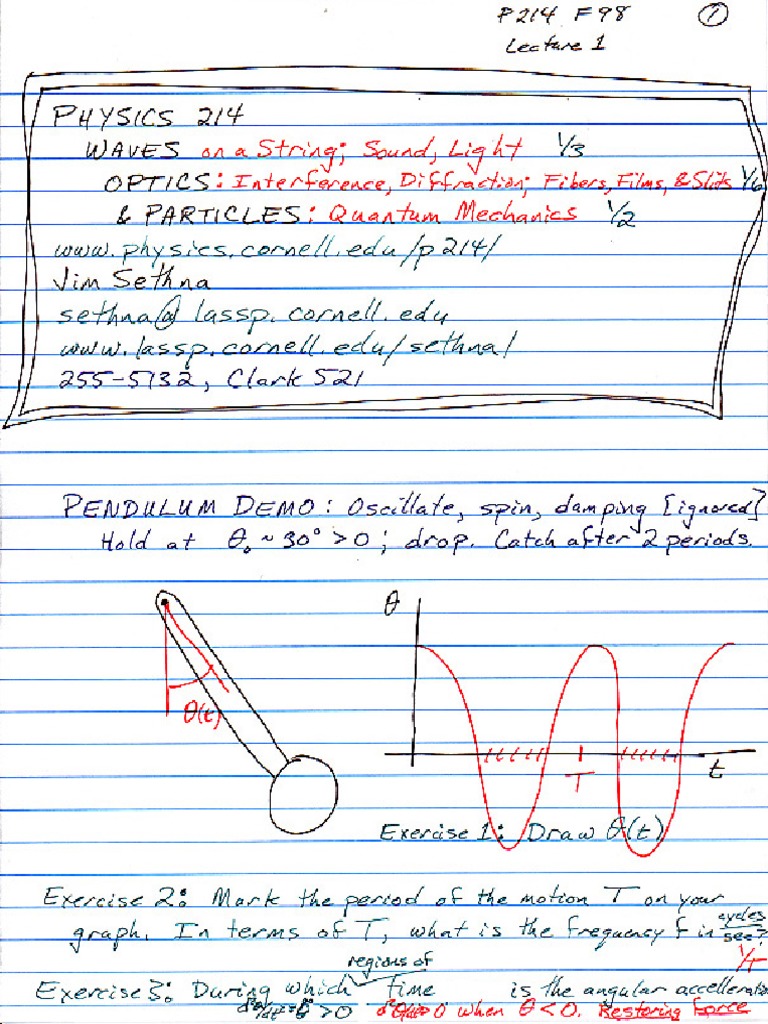 P214 F98 ①
Lecture 1
PHYSICS 214
WAVES on a String; Sound, Light 1/3
OPTICS: Interference, Diffraction; Fibers, Films, & Slits 1/6
& PARTICLES: Quantum Mechanics 1/2
www.physics.cornell.edu/p214/
Jim Sethna
sethna@lassp.cornell.edu
www.lassp.cornell.edu/sethna/
255-5132, Clark 521
PENDULUM DEMO: Oscillate, spin, damping [ignored]
Hold at θ₀ ~ 30° > 0; drop. Catch after 2 periods.
θ
θ(t)
T
t
Exercise 1: Draw θ(t)
Exercise 2: Mark the period of the motion T on your
graph. In terms of T, what is the frequency f in cycles/sec?
1/T
Exercise 3: During which regions of time is the angular acceleration
> 0 when θ < 0. Restoring Force